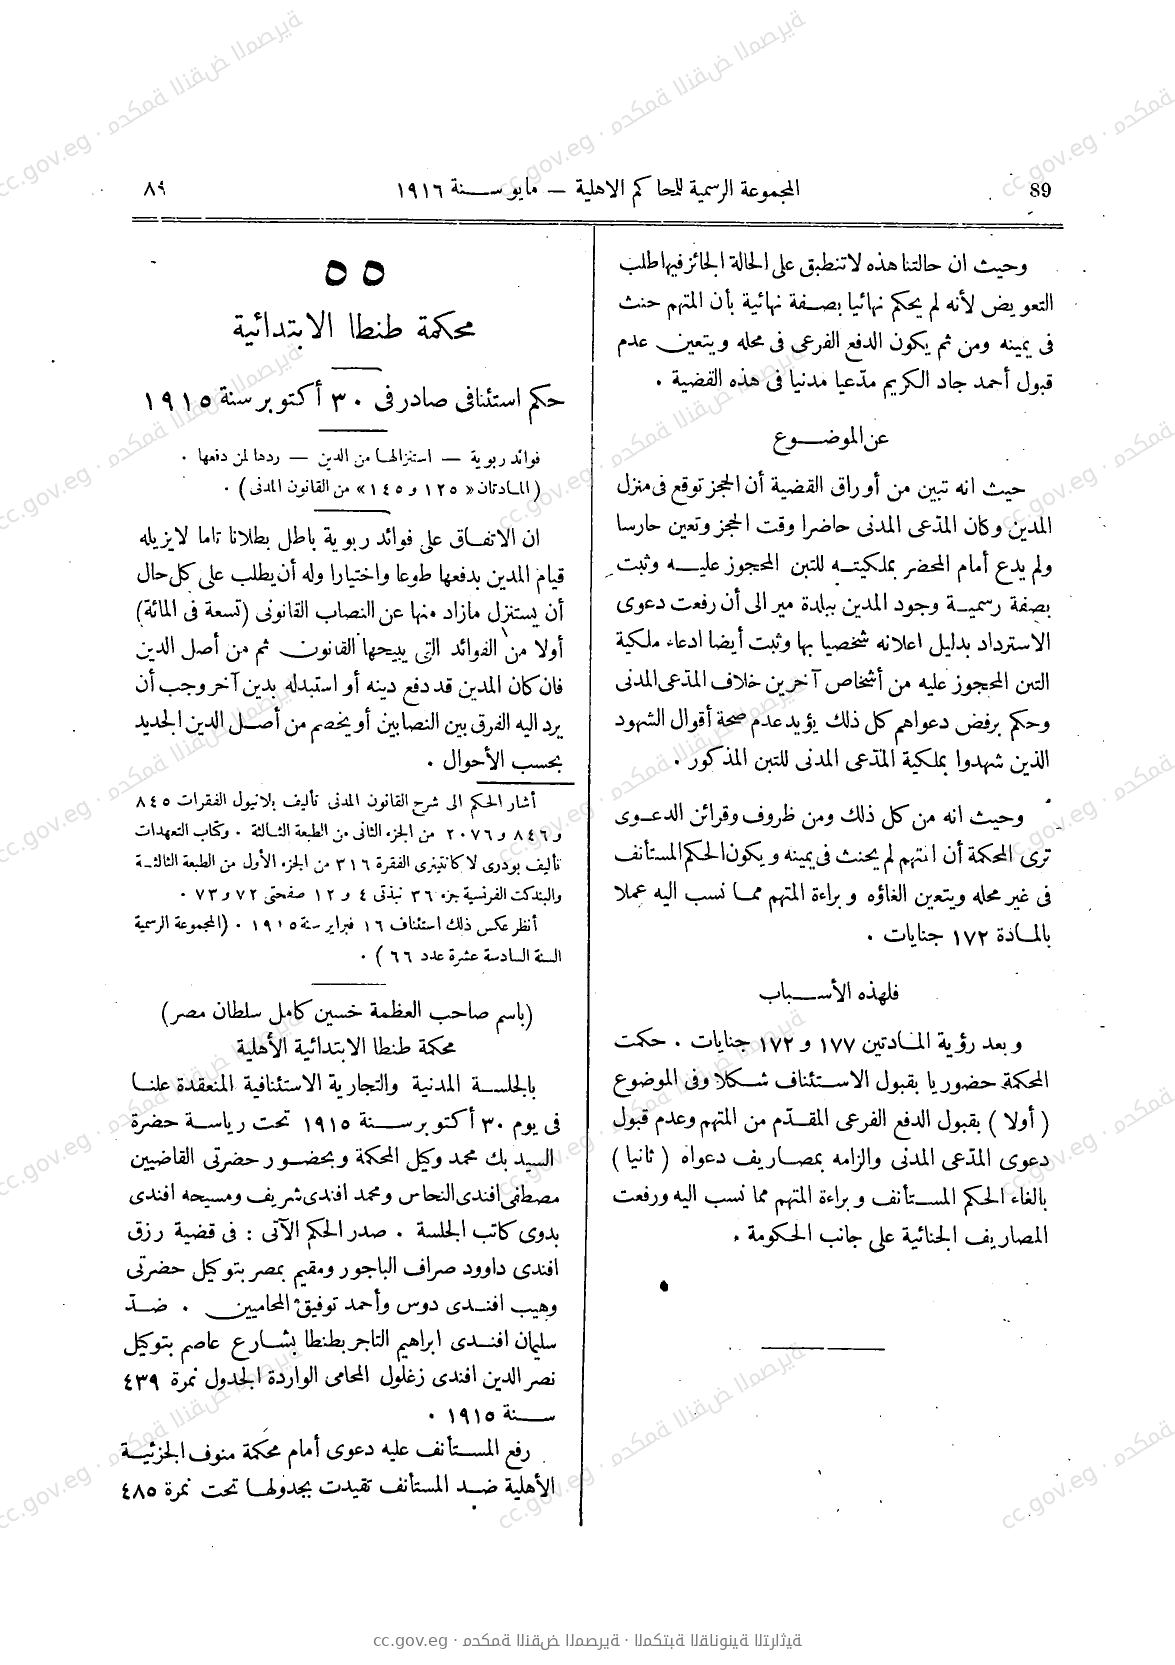 89
المجموعة الرسمية للمحاكم الاهلية – مايو سنة ١٩١٦
٨٩
وحيث ان حالتنا هذه لاتنطبق على الحالة الجائز فيها طلب
التعويض لأنه لم يحكم نهائيا بصفة نهائية بأن المتهم حنث
فى يمينه ومن ثم يكون الدفع الفرعى فى محله ويتعين عدم
قبول أحمد جاد الكريم مدّعيا مدنيا فى هذه القضية .
عن الموضوع
حيث انه تبين من أوراق القضية أن الحجز توقع فى منزل
المدين وكان المدّعى المدنى حاضرا وقت الحجز وتعين حارسا
ولم يدع أمام المحضر بملكيته للتبن المحجوز عليه وثبت
بصفة رسمية وجود المدين ببلدة مير الى أن رفعت دعوى
الاسترداد بدليل اعلانه شخصيا بها وثبت أيضا ادعاء ملكية
التبن المحجوز عليه من أشخاص آخرين خلاف المدّعى المدنى
وحكم برفض دعواهم كل ذلك يؤيد عدم صحة أقوال الشهود
الذين شهدوا بملكية المدّعى المدنى للتبن المذكور .
وحيث انه من كل ذلك ومن ظروف وقرائن الدعوى
ترى المحكمة أن المتهم لم يحنث فى يمينه ويكون الحكم المستأنف
فى غير محله ويتعين الغاؤه وبراءة المتهم مما نسب اليه عملا
بالمادة ١٧٢ جنايات .
فلهذه الأسباب
وبعد رؤية المادتين ١٧٧ و ١٧٢ جنايات . حكمت
المحكمة حضوريا بقبول الاستئناف شكلا وفى الموضوع
( أولا ) بقبول الدفع الفرعى المقدّم من المتهم وعدم قبول
دعوى المدّعى المدنى والزامه بمصاريف دعواه ( ثانيا )
بالغاء الحكم المستأنف وبراءة المتهم مما نسب اليه ورفعت
المصاريف الجنائية على جانب الحكومة .
٥٥
محكمة طنطا الابتدائية
حكم استئنافى صادر فى ٣٠ أكتوبر سنة ١٩١٥
فوائد ربوية — استنزالها من الدين — ردها لمن دفعها .
( المادتان « ١٢٥ و ١٤٥ » من القانون المدنى ) .
ان الاتفاق على فوائد ربوية باطل بطلانا تاما لايزيله
قيام المدين بدفعها طوعا واختيارا وله أن يطلب على كل حال
أن يستنزل مازاد منها عن النصاب القانونى (تسعة فى المائة)
أولا من الفوائد التى يبيحها القانون ثم من أصل الدين
فان كان المدين قد دفع دينه أو استبدله بدين آخر وجب أن
يرد اليه الفرق بين النصابين أو يخصم من أصل الدين الجديد
بحسب الأحوال .
أشار الحكم الى شرح القانون المدنى تأليف بلانيول الفقرات ٨٤٥
و ٨٤٦ و ٢٠٧٦ من الجزء الثانى من الطبعة الثالثة . وكتاب التعهدات
تأليف بودرى لاكانتينرى الفقرة ٣١٦ من الجزء الأول من الطبعة الثالثة
والبندكت الفرنسية جزء ٣٦ نبذتى ٤ و ١٢ صفحتى ٧٢ و ٧٣ .
أنظر عكس ذلك استئناف ١٦ فبراير سنة ١٩١٥ . (المجموعة الرسمية
السنة السادسة عشرة عدد ٦٦ ) .
(باسم صاحب العظمة حسين كامل سلطان مصر)
محكمة طنطا الابتدائية الأهلية
بالجلسة المدنية والتجارية الاستئنافية المنعقدة علنا
فى يوم ٣٠ أكتوبر سنة ١٩١٥ تحت رياسة حضرة
السيد بك محمد وكيل المحكمة وبحضور حضرتى القاضيين
مصطفى افندى النحاس ومحمد افندى شريف ومسيحه افندى
بدوى كاتب الجلسة . صدر الحكم الآتى : فى قضية رزق
افندى داوود صراف الباجور ومقيم بمصر بتوكيل حضرتى
وهيب افندى دوس وأحمد توفيق المحاميين . ضدّ
سليمان افندى ابراهيم التاجر بطنطا بشارع عاصم بتوكيل
نصر الدين افندى زغلول المحامى الواردة الجدول نمرة ٤٣٩
سنة ١٩١٥ .
رفع المستأنف عليه دعوى أمام محكمة منوف الجزئية
الأهلية ضد المستأنف تقيدت بجدولها تحت نمرة ٤٨٥
cc.gov.eg · محكمة النقض المصرية · المكتبة القانونية التراثية